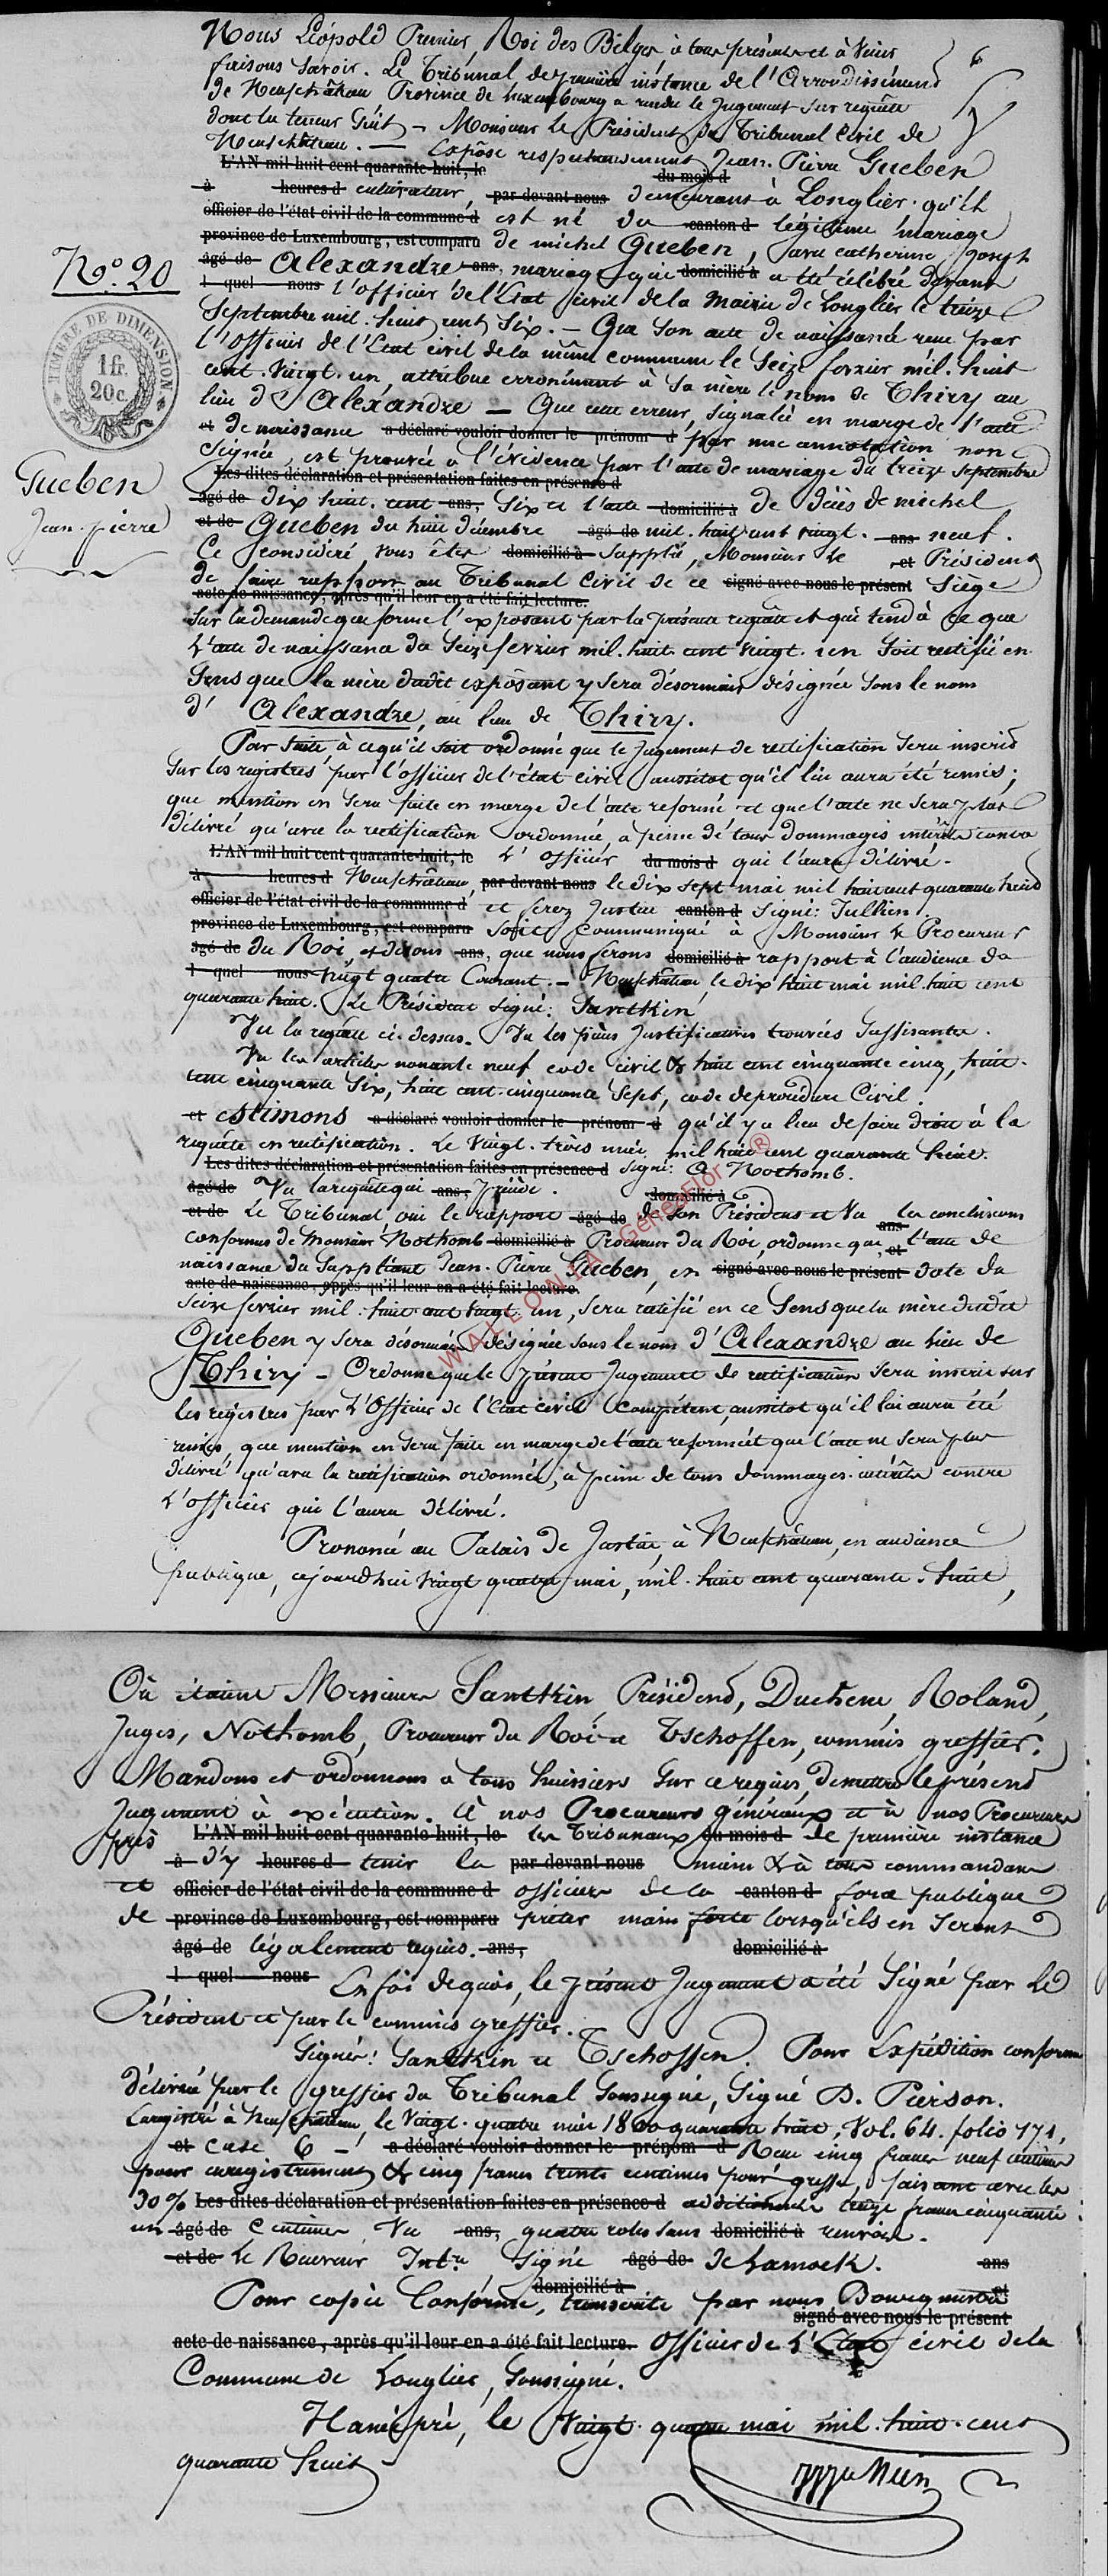 Nous Léopold Premier, Roi des Belges à tous présents et à venir 6
faisons savoir. Le Tribunal de première instance de l'Arrondissement
de Neufchâteau Province de Luxembourg a rendu le jugement sur requête
dont la teneur suit – Monsieur Le Président du Tribunal Civil de
Neufchâteau. — Expose respectueusement Jean-Pierre Gueben
L'AN mil huit cent quarante-huit, le du mois d
à heures d cultivateur, par devant nous demeurant à Longlier. qu'il
officier de l'état civil de la commune d est né du canton d légitime mariage
province de Luxembourg, est comparu de michel Gueben, avec catherine Joseph
N.º 20
âgé de Alexandre ans, mariage qui domicilié à a été célébré devant
l quel nous l'officier de l'Etat civil de la Mairie de Longlier le treize
Septembre mil huit cent six. – Que son acte de naissance reçu par
TIMBRE DE DIMENSION
1 fr.
20 c.
l'officier de l'Etat civil de la même commune le Seize fevrier mil. huit
cent. vingt. un, attribue erronément à sa mère le nom de Thiry au
lieu d'Alexandre – Que cette erreur, signalée en marge de l'acte
et de naissance a déclaré vouloir donner le prénom d par une annotation non
signée, est prouvée à l'évidence par l'acte de mariage du treize Septembre
Les dites déclaration et présentation faites en présence d
Gueben
Jean-pierre
âgé de dix huit. cent ans, Six et l'acte domicilié à de décès de michel
et de Gueben du huit décembre âgé de mil. huit cent vingt. ans neuf.
Ce considéré, vous êtes domicilié à supplié, Monsieur le et Président
de faire rapport au Tribunal Civil de ce signé avec nous le présent Siège
acte de naissance, après qu'il leur en a été fait lecture.
Sur la demande que forme l'exposant par la présente requête et qui tend à ce que
L'acte de naissance du Seize fevrier mil. huit. cent vingt. un soit rectifié en
Sens que la mère dudit exposant y sera désormais désignée sous le nom
d'Alexandre, au lieu de Thiry.
Par suite à ce qu'il soit ordonné que le jugement de rectification sera inscrit
Sur les registres par l'officier de l'état civil aussitot qu'il lui aura été remis;
que mention en sera faite en marge de l'acte reformé et que l'acte ne sera plus
délivré qu'avec la rectification ordonnée, à peine de tous dommages intérêts contre
L'AN mil huit cent quarante-huit, le L'officier du mois d qui l'aura délivré.
à heures d Neufchâteau, par devant nous le dix sept mai mil huit cent quarante huit
officier de l'état civil de la commune d et ferez justice canton d Signé: Jullien.
province de Luxembourg, est comparu Soit communiqué à Monsieur le Procureur
âgé de du Roi, et disons ans, que nous ferons domicilié à rapport à l'audience du
l quel nous vingt quatre Courant. – Neufchâteau, le dix huit mai mil huit cent
quarante huit. Le Président signé: Santkin
Vu la requête ci-dessus. Vu les pièces justificatives trouvées suffisantes.
Vu les articles nonante neuf code civil & huit cent cinquante cinq, huit.
cent cinquante Six, huit cent. cinquante Sept, code de procédure Civil.
et estimons a déclaré vouloir donner le prénom d qu'il y a lieu de faire droit à la
requête en rectification. Le vingt. trois mai mil huit cent quarante huit.
Les dites déclaration et présentation faites en présence d Signé: Nothomb.
âgé de Vu la requête qui ans, précède. domicilié à
et de Le Tribunal, oui le rapport âgé de de son Président et Vu ans les conclusions
conformes de Monsieur Nothomb domicilié à Procureur du Roi, ordonne que, et l'acte de
naissance du suppliant Jean-Pierre Gueben, en signé avec nous le présent date du
acte de naissance, après qu'il leur en a été fait lecture.
Seize fevrier mil. huit cent vingt. un, sera rectifié en ce Sens que la mère dudit
Gueben y sera désormais désignée sous le nom d'Alexandre au lieu de
Thiry – Ordonne que le présent jugement de rectification sera inscrit sur
les registres par L'Officier de l'Etat civil compétent, aussitot qu'il lui aura été
remis, que mention en sera faite en marge de l'acte reformé et que l'acte ne sera plus
délivré qu'avec la rectification ordonnée, à peine de tous dommages. intérêts contre
L'officier qui l'aura délivré.
Prononcé au Palais de Justice, à Neufchâteau, en audience
publique, cejourd'hui vingt quatre mai, mil. huit cent quarante. huit,
WALLONIA GénéaFlor ®
Où étaient Messieurs Santkin, Président, Duchene, Roland,
Juges, Nothomb, Procureur du Roi et Tschoffen, commis greffier.
Mandons et ordonnons a tous huissiers sur ce requis, de mettre le présent
Jugement à exécution. à nos Procureurs généraux et à nos Procureurs
près L'AN mil huit cent quarante-huit, le les Tribunaux du mois d de première instance
à d'y heures d tenir la par devant nous main & à tous commandans
et officier de l'état civil de la commune d officiers de la canton d force publique
de province de Luxembourg, est comparu prêter main forte lorsqu'ils en seront
âgé de légalement requis. ans, domicilié à
l quel nous En foi de quoi, le présent Jugement a été signé par Le
Président et par le commis greffier.
Signés: Santkin et Tschoffen. Pour Expédition conforme
délivrée par le greffier du Tribunal soussigné, Signé D. Pierson.
Enregistré à Neufchâteau, le vingt. quatre mai 1800 quarante huit, Vol. 64. folio 171,
et case 6 – a déclaré vouloir donner le prénom d Reçu cinq francs neuf centimes
pour enregistrement & cinq francs trente centimes pour greffe, faisant avec les
30 % Les dites déclaration et présentation faites en présence d additionnels treize francs cinquante
un âgé de Centimes Vu ans, quatre roles sans domicilié à renvois.
et de Le Receveur signé âgé de de Lamock. ans
Pour copie Conforme, domicilié à transcrite par nous Bourgmestre et
signé avec nous le présent
acte de naissance, après qu'il leur en a été fait lecture. Officier de L'Etat civil de la
Commune de Longlier, Soussigné.
Hamipré, le vingt. quatre mai mil. huit. cent
quarante huit